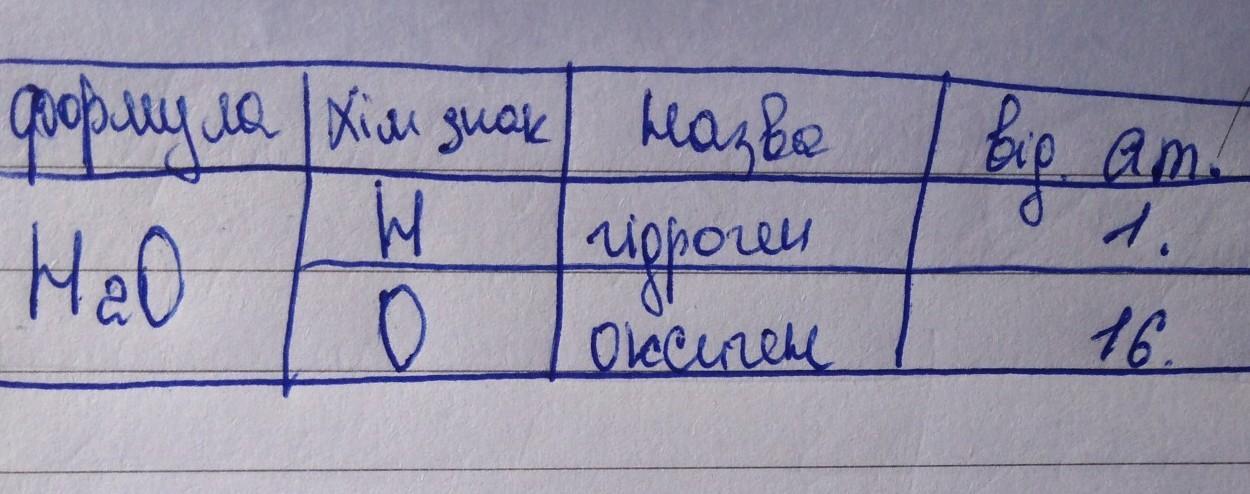 формула Хім знак Назва від. ат.
H₂O H гідроген 1.
O оксиген 16.